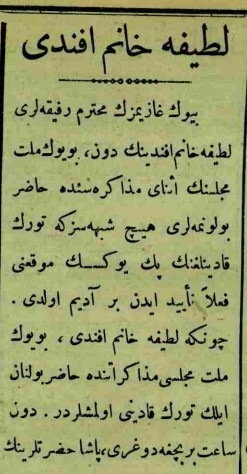 لطيفه خانم افندى
بيوك غازيمزك محترم رفيقه‌لرى
لطيفه خانم افندينك دون، بويوك ملت
مجلسنك اثناى مذاكره‌سنده حاضر
بولونمه‌لرى هيچ شبهه‌سزكه تورك
قادينلغنك پك يوكسك موقعنى
فعلاً تأييد ايدن بر آديم اولدى .
چونكه لطيفه خانم افندى ، بويوك
ملت مجلسى مذاكراتنده حاضر بولنان
ايلك تورك قادينى اولمشلردر . دون
ساعت بر بچغه دوغرى، پاشا حضرتلرينك